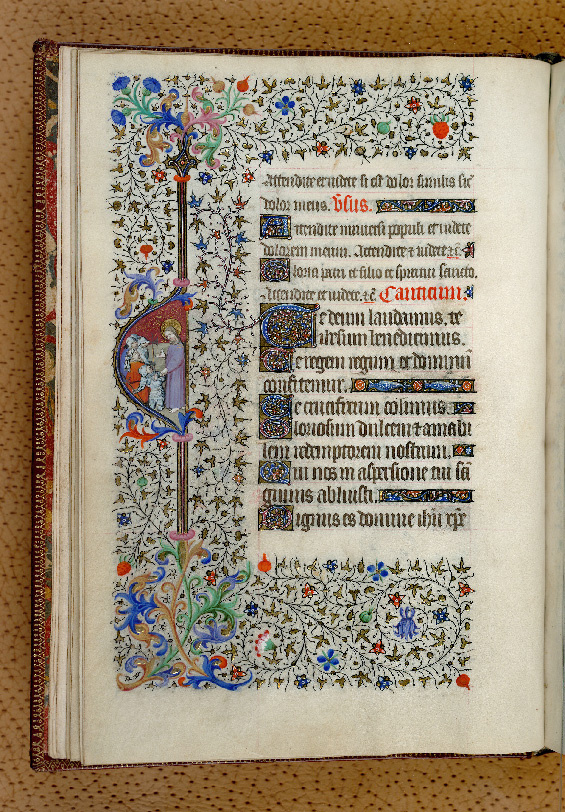 Attendite et videte si est dolor similis sic
dolor meus. v̄sus.
Attendite universi populi et videte
dolorem meum. Attendite et videte. etc̄.
Gloria patri et filio et spiritui sancto.
Attendite et videte. etc̄. Canticum.
Te deum laudamus. te
ihesum benedicimus.
Te regem regum et dominū
confitemur.
Te crucifixum colimus.
Gloriosum dulcem et amabi
lem redemptorem nostrum.
Qui nos in aspersione tui sā
guinis abluisti.
Dignus es domine ihū xp̄e